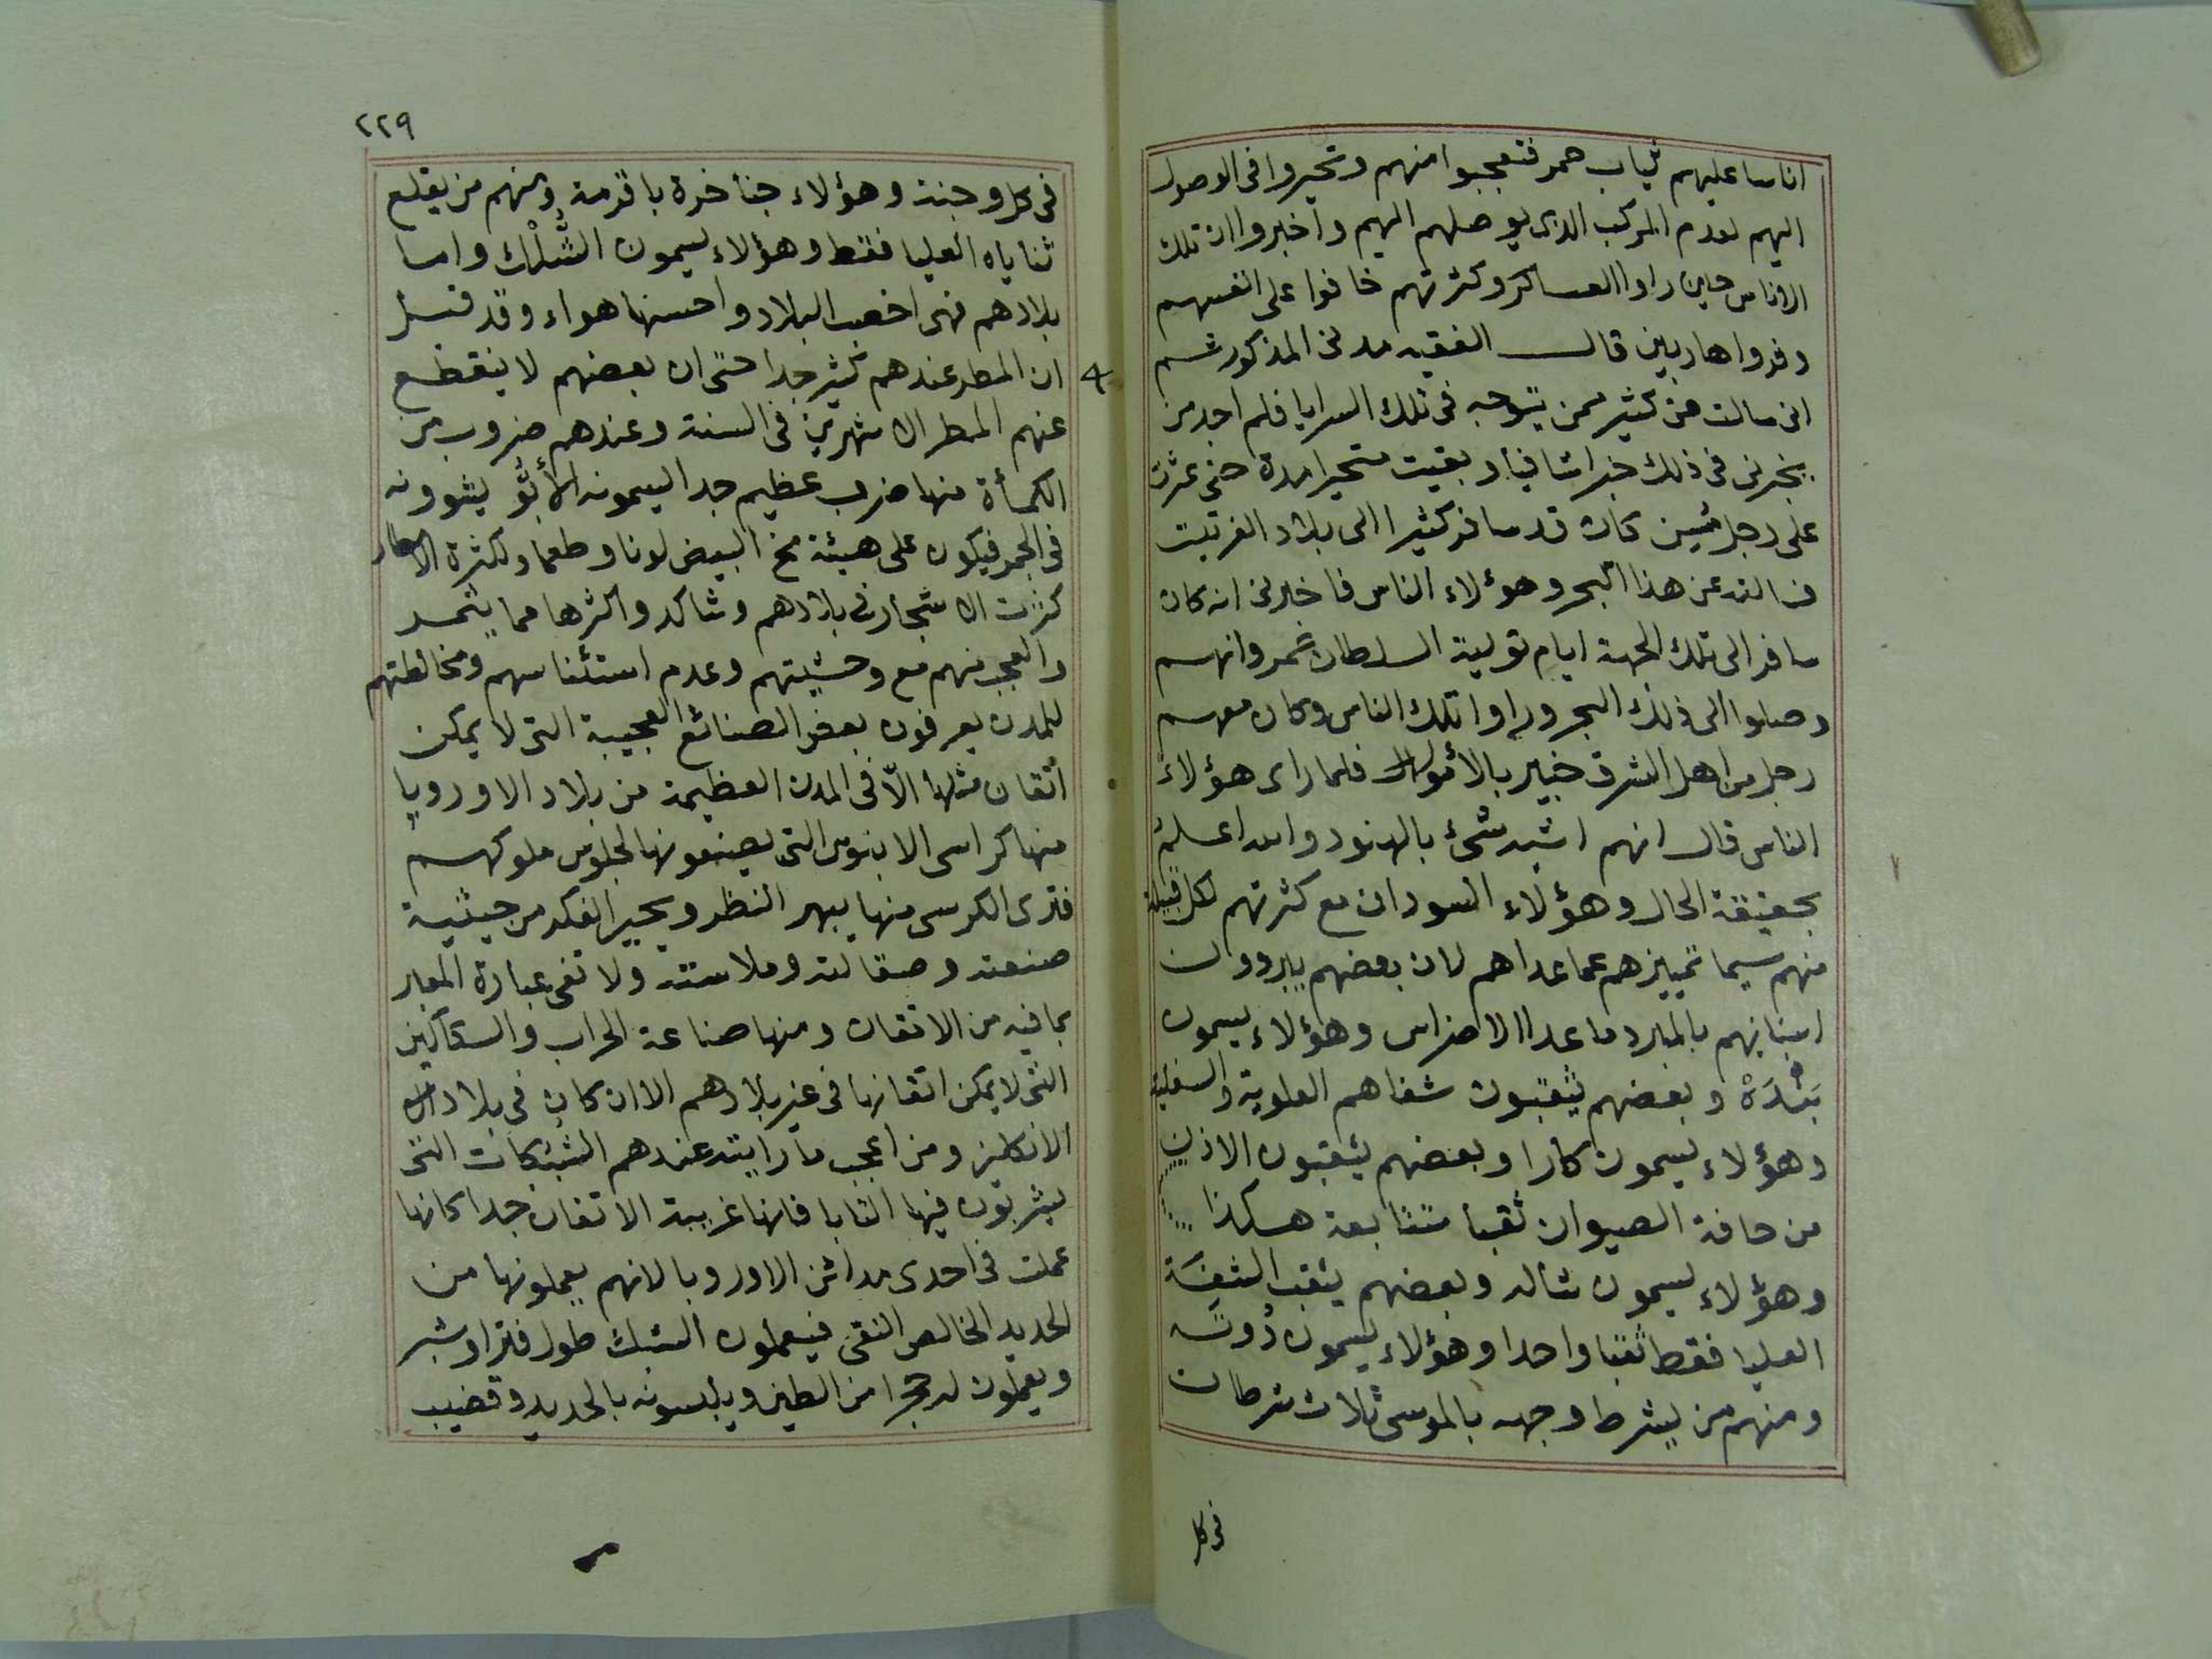 اناسا عليهم ثياب حمر فتعجبوا منهم وتحيروا فى الوصول
اليهم لعدم المركب الذى يوصلهم اليهم واخبروا ان تلك
الاناس حين راوا العساكر وكثرتهم خافوا على انفسهم
وفروا هاربين قال الفقيه مدنى المذكور ثم
انى سالت من كثير ممن يتوجه فى تلك السرايا فلم اجد من
يخبرنى فى ذلك خبرا شافيا وبقيت متحيرا مدة حتى عثرت
على رجل مسن كان قد سافر كثيرا الى بلاد الفرتيت
فسالته عن هذا البحر وهؤلاء الناس فاخبرنى انه كان
سافر الى تلك الجهة ايام تولية السلطان عمر وانهم
وصلوا الى ذلك البحر وراوا تلك الناس وكان معهم
رجل من اهل الشرق خبير بالأمور فلما راى هؤلاء
الناس قال انهم اشبه شئ بالهنود والله اعلم
بحقيقة الحال وهؤلاء السودان مع كثرتهم لكل قبيلة
منهم سيما تمييزهم عما عداهم لان بعضهم يبردون
اسنانهم بالمبرد ما عدا الاضراس وهؤلاء يسمون
بَنْدَهْ وبعضهم يثقبون شفاهم العلوية والسفلية
وهؤلاء يسمون كارا وبعضهم يثقبون الاذن
من حافة الصيوان ثقبا متتابعة هكذا
وهؤلاء يسمون شاله وبعضهم يثقب الشفة
العليا فقط ثقبا واحدا وهؤلاء يسمون
ومنهم من يشرط وجهه بالموسى ثلاث شرطات
فى كل
٢٢٩
فى كل وجنة وهؤلاء جناخرة باقرمة ومنهم من يقلع
ثناياه العليا فقط وهؤلاء يسمون الشُلْك واما
بلادهم فهى اخصب البلاد واحسنها هواء وقد قيل
ان المطر عندهم كثير جدا حتى ان بعضهم لا ينقطع
عنهم المطر الا شهرين فى السنة وعندهم ضروب من
الكمأة منها ضرب عظيم جدا يسمونه يشوونه
فى الجمر فيكون على هيئة مخ البيض لونا وطعما ولكثرة الامطار
كثرت الاشجار فى بلادهم وشاكد واكثرها مما يثمر
والعجب منهم مع وحشيتهم وعدم استئناسهم ومخالطتهم
للمدن يعرفون بعض الصنائع العجيبة التى لا يمكن
اتقان مثلها الّا فى المدن العظيمة من بلاد الاوروپا
منها كراسى الابنوس التى يصنعونها لجلوس ملوكهم
فترى الكرسى منها يبهر النظر ويحير الفكر من حيثية
صنعته وصقالته وملاسته ولا تفى عبارة المعبر
بما فيه من الاتقان ومنها صناعة الحراب والسكاكين
التى لا يمكن اتقانها فى غير بلادهم الا ان كان فى بلاد
الانكليز ومن اعجب ما رايته عندهم الشبكات التى
يشربون فيها التابا فانها غريبة الاتقان جدا كانها
عملت فى احدى مدائن الاوروپا لانهم يعملونها من
الحديد الخالص النقى فيعملون الشبك طول فترا وشبر
ويعملون له حجرا من الطين ويلبسونه بالحديد وقضيب